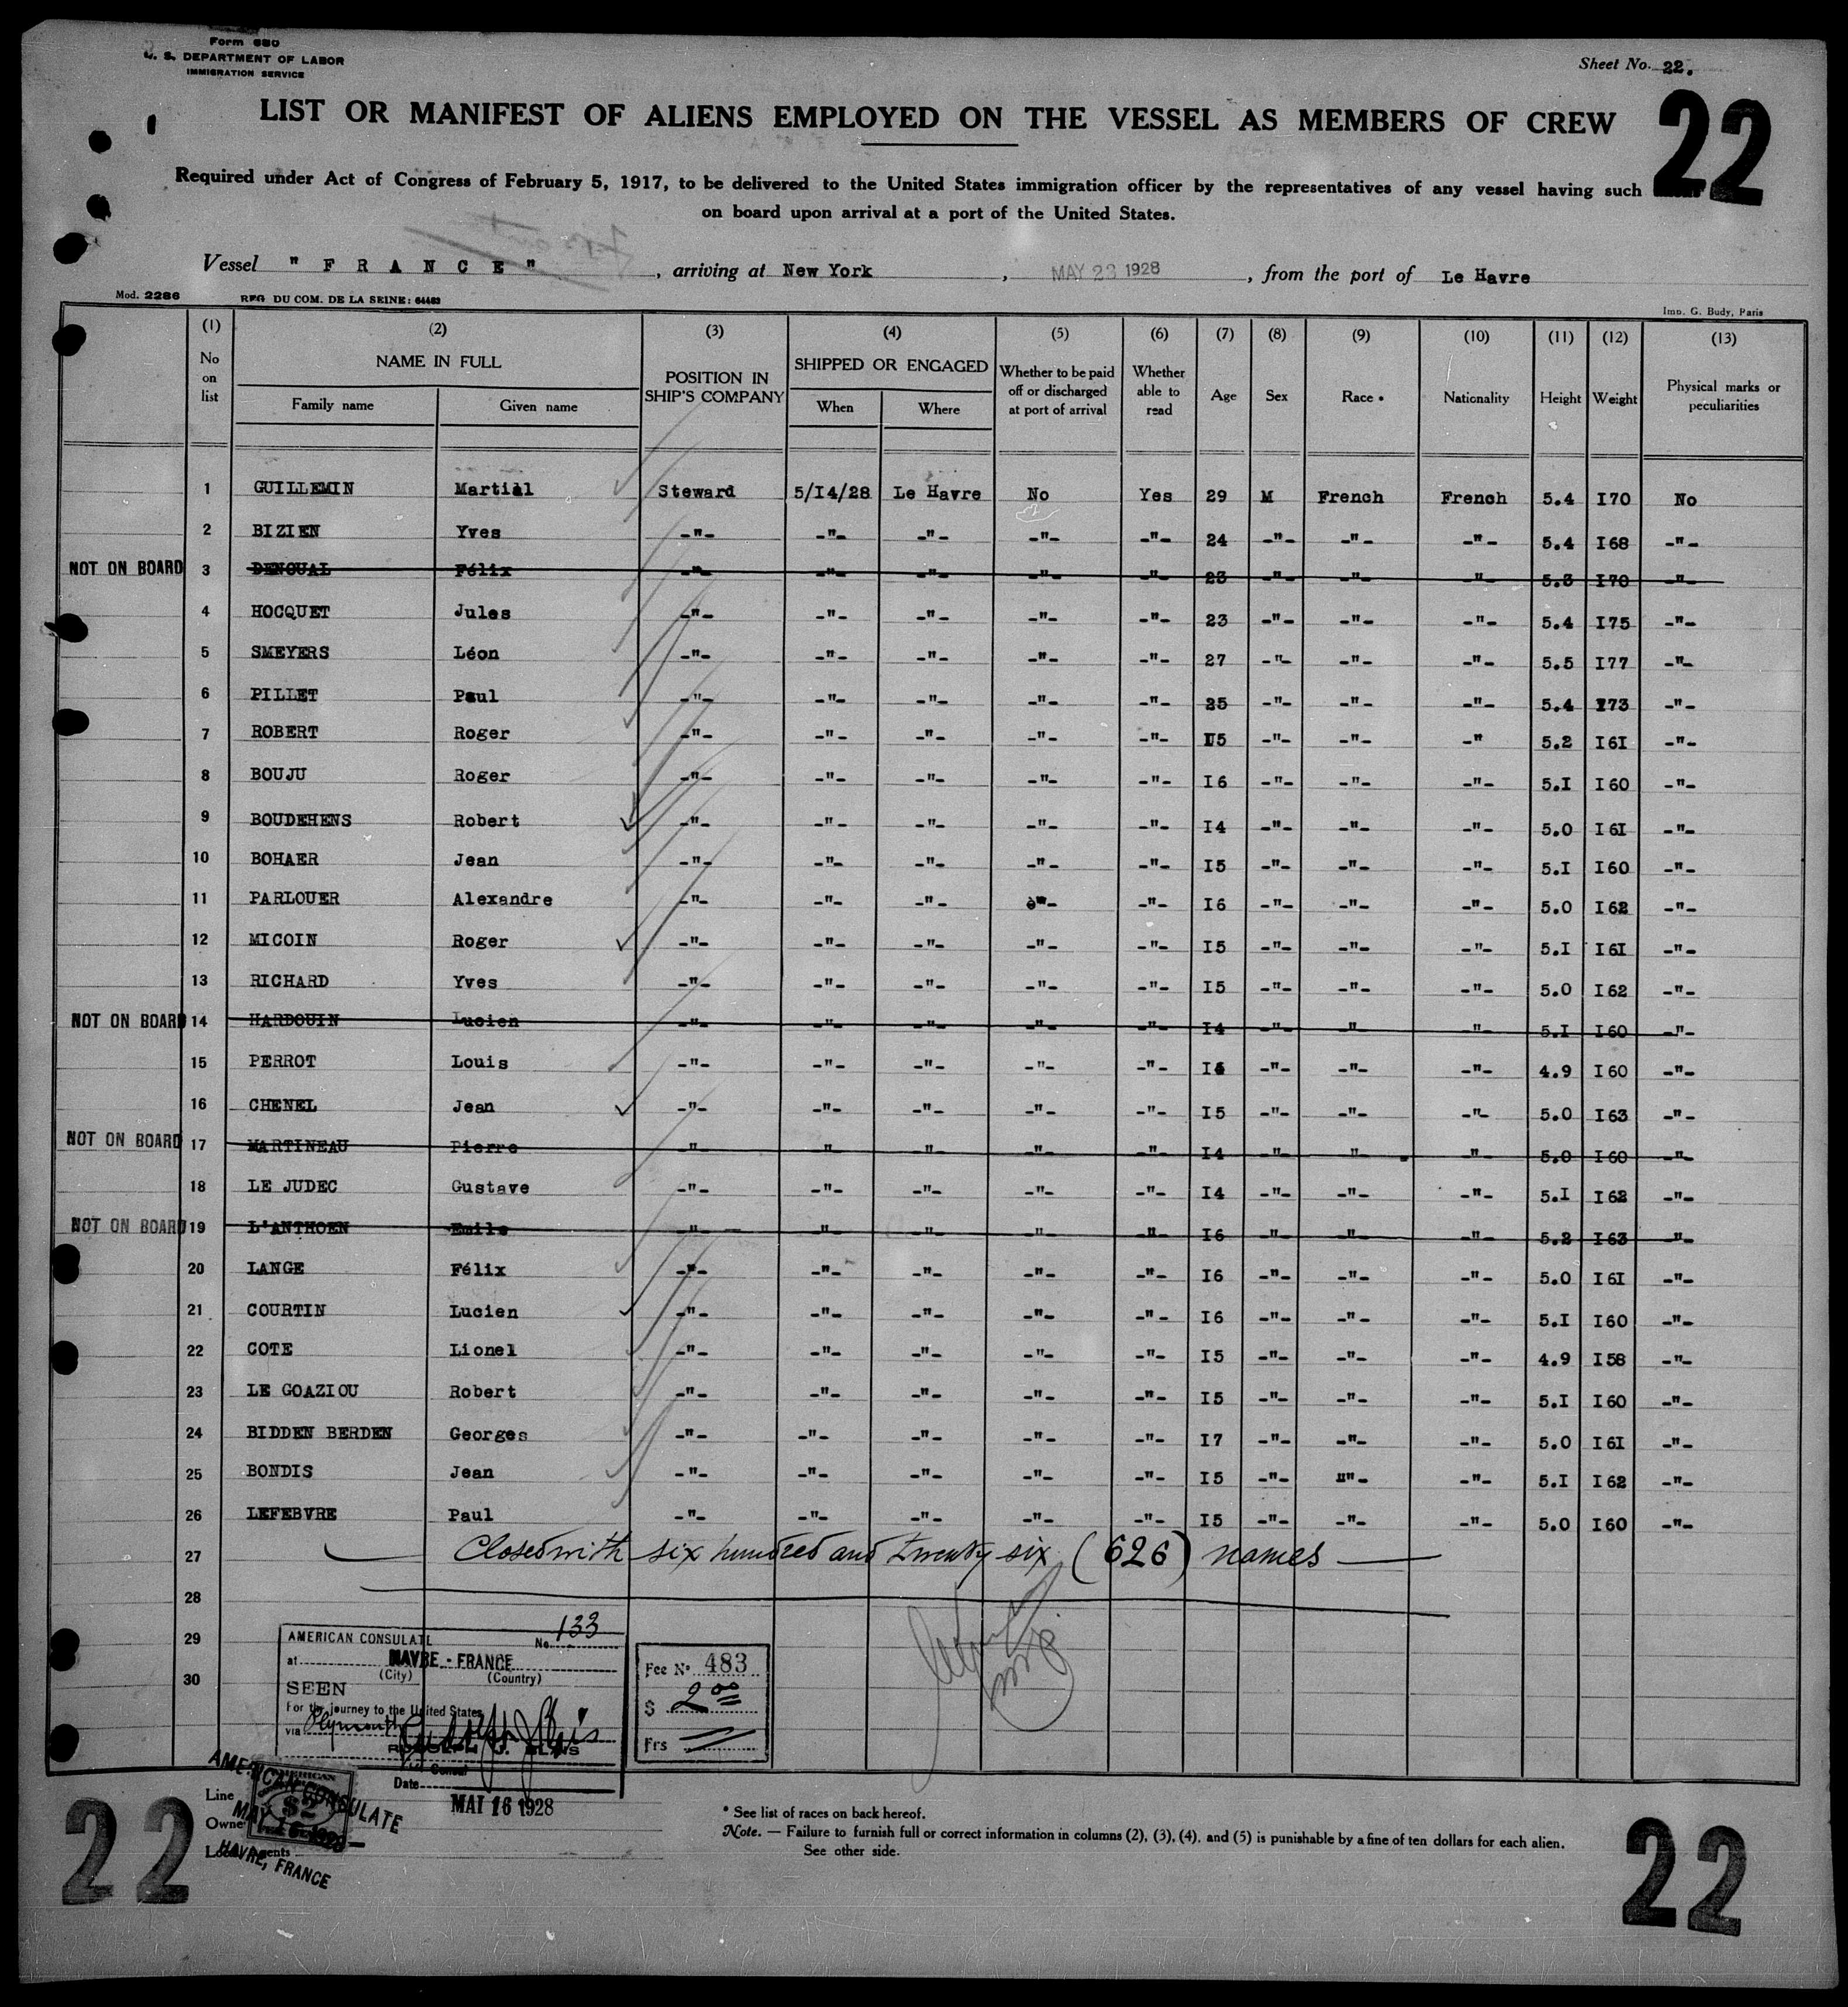 Form 680
U. S. DEPARTMENT OF LABOR
IMMIGRATION SERVICE
Sheet No. 22.
LIST OR MANIFEST OF ALIENS EMPLOYED ON THE VESSEL AS MEMBERS OF CREW
22
Required under Act of Congress of February 5, 1917, to be delivered to the United States immigration officer by the representatives of any vessel having such
on board upon arrival at a port of the United States.
Vessel " F R A N C E " , arriving at New York , MAY 23 1928 , from the port of Le Havre
Mod. 2286 REG DU COM. DE LA SEINE: 64483 Imp. G. Budy, Paris
(1) (2) (3) (4) (5) (6) (7) (8) (9) (10) (11) (12) (13)
No on list NAME IN FULL Family name Given name POSITION IN SHIP'S COMPANY SHIPPED OR ENGAGED When Where Whether to be paid off or discharged at port of arrival Whether able to read Age Sex Race * Nationality Height Weight Physical marks or peculiarities
1 GUILLEMIN Martial Steward 5/I4/28 Le Havre No Yes 29 M French French 5.4 I70 No
2 BIZIEN Yves -"- -"- -"- -"- -"- 24 -"- -"- -"- 5.4 I68 -"-
NOT ON BOARD 3 DENOUAL Félix -"- -"- -"- -"- -"- 23 -"- -"- -"- 5.3 I70 -"-
4 HOCQUET Jules -"- -"- -"- -"- -"- 23 -"- -"- -"- 5.4 I75 -"-
5 SMEYERS Léon -"- -"- -"- -"- -"- 27 -"- -"- -"- 5.5 I77 -"-
6 PILLET Paul -"- -"- -"- -"- -"- 25 -"- -"- -"- 5.4 I73 -"-
7 ROBERT Roger -"- -"- -"- -"- -"- I5 -"- -"- -" 5.2 I6I -"-
8 BOUJU Roger -"- -"- -"- -"- -"- I6 -"- -"- -"- 5.I I60 -"-
9 BOUDEHENS Robert -"- -"- -"- -"- -"- I4 -"- -"- -"- 5.0 I6I -"-
10 BOHAER Jean -"- -"- -"- -"- -"- I5 -"- -"- -"- 5.I I60 -"-
11 PARLOUER Alexandre -"- -"- -"- -"- -"- I6 -"- -"- -"- 5.0 I62 -"-
12 MICOIN Roger -"- -"- -"- -"- -"- I5 -"- -"- -"- 5.I I6I -"-
13 RICHARD Yves -"- -"- -"- -"- -"- I5 -"- -"- -"- 5.0 I62 -"-
NOT ON BOARD 14 HARDOUIN Lucien -"- -"- -"- -"- -"- I4 -"- -"- -"- 5.I I60 -"-
15 PERROT Louis -"- -"- -"- -"- -"- -"- -"- -"- 4.9 I60 -"-
16 CHENEL Jean -"- -"- -"- -"- -"- I5 -"- -"- -"- 5.0 I63 -"-
NOT ON BOARD 17 MARTINEAU Pierre -"- -"- -"- -"- -"- I4 -"- -"- -"- 5.0 I60 -"-
18 LE JUDEC Gustave -"- -"- -"- -"- -"- I4 -"- -"- -"- 5.I I62 -"-
NOT ON BOARD 19 L'ANTHOEN Emile -"- -"- -"- -"- -"- I6 -"- -"- -"- 5.2 I63 -"-
20 LANGE Félix -"- -"- -"- -"- -"- I6 -"- -"- -"- 5.0 I6I -"-
21 COURTIN Lucien -"- -"- -"- -"- -"- I6 -"- -"- -"- 5.I I60 -"-
22 COTE Lionel -"- -"- -"- -"- -"- I5 -"- -"- -"- 4.9 I58 -"-
23 LE GOAZIOU Robert -"- -"- -"- -"- -"- I5 -"- -"- -"- 5.I I60 -"-
24 BIDDEN BERDEN Georges -"- -"- -"- -"- -"- I7 -"- -"- -"- 5.0 I6I -"-
25 BONDIS Jean -"- -"- -"- -"- -"- I5 -"- ""- -"- 5.I I62 -"-
26 LEFEBVRE Paul -"- -"- -"- -"- -"- I5 -"- -"- -"- 5.0 I60 -"-
27 Closed with six hundred and twenty six (626) names
28
29
30
AMERICAN CONSULATE No. 133
at HAVRE - FRANCE
(City) (Country)
SEEN
For the journey to the United States
via Plymouth
RUDOLPH J. BLAIS
Consul
Date
MAI 16 1928
Fee No 483
$ 2 00
Frs
AMERICAN CONSULATE
MAY 16 1928
HAVRE, FRANCE
AMERICAN
$2
Line
Owne
Local Agents
* See list of races on back hereof.
Note. — Failure to furnish full or correct information in columns (2), (3), (4), and (5) is punishable by a fine of ten dollars for each alien.
See other side.
22
22